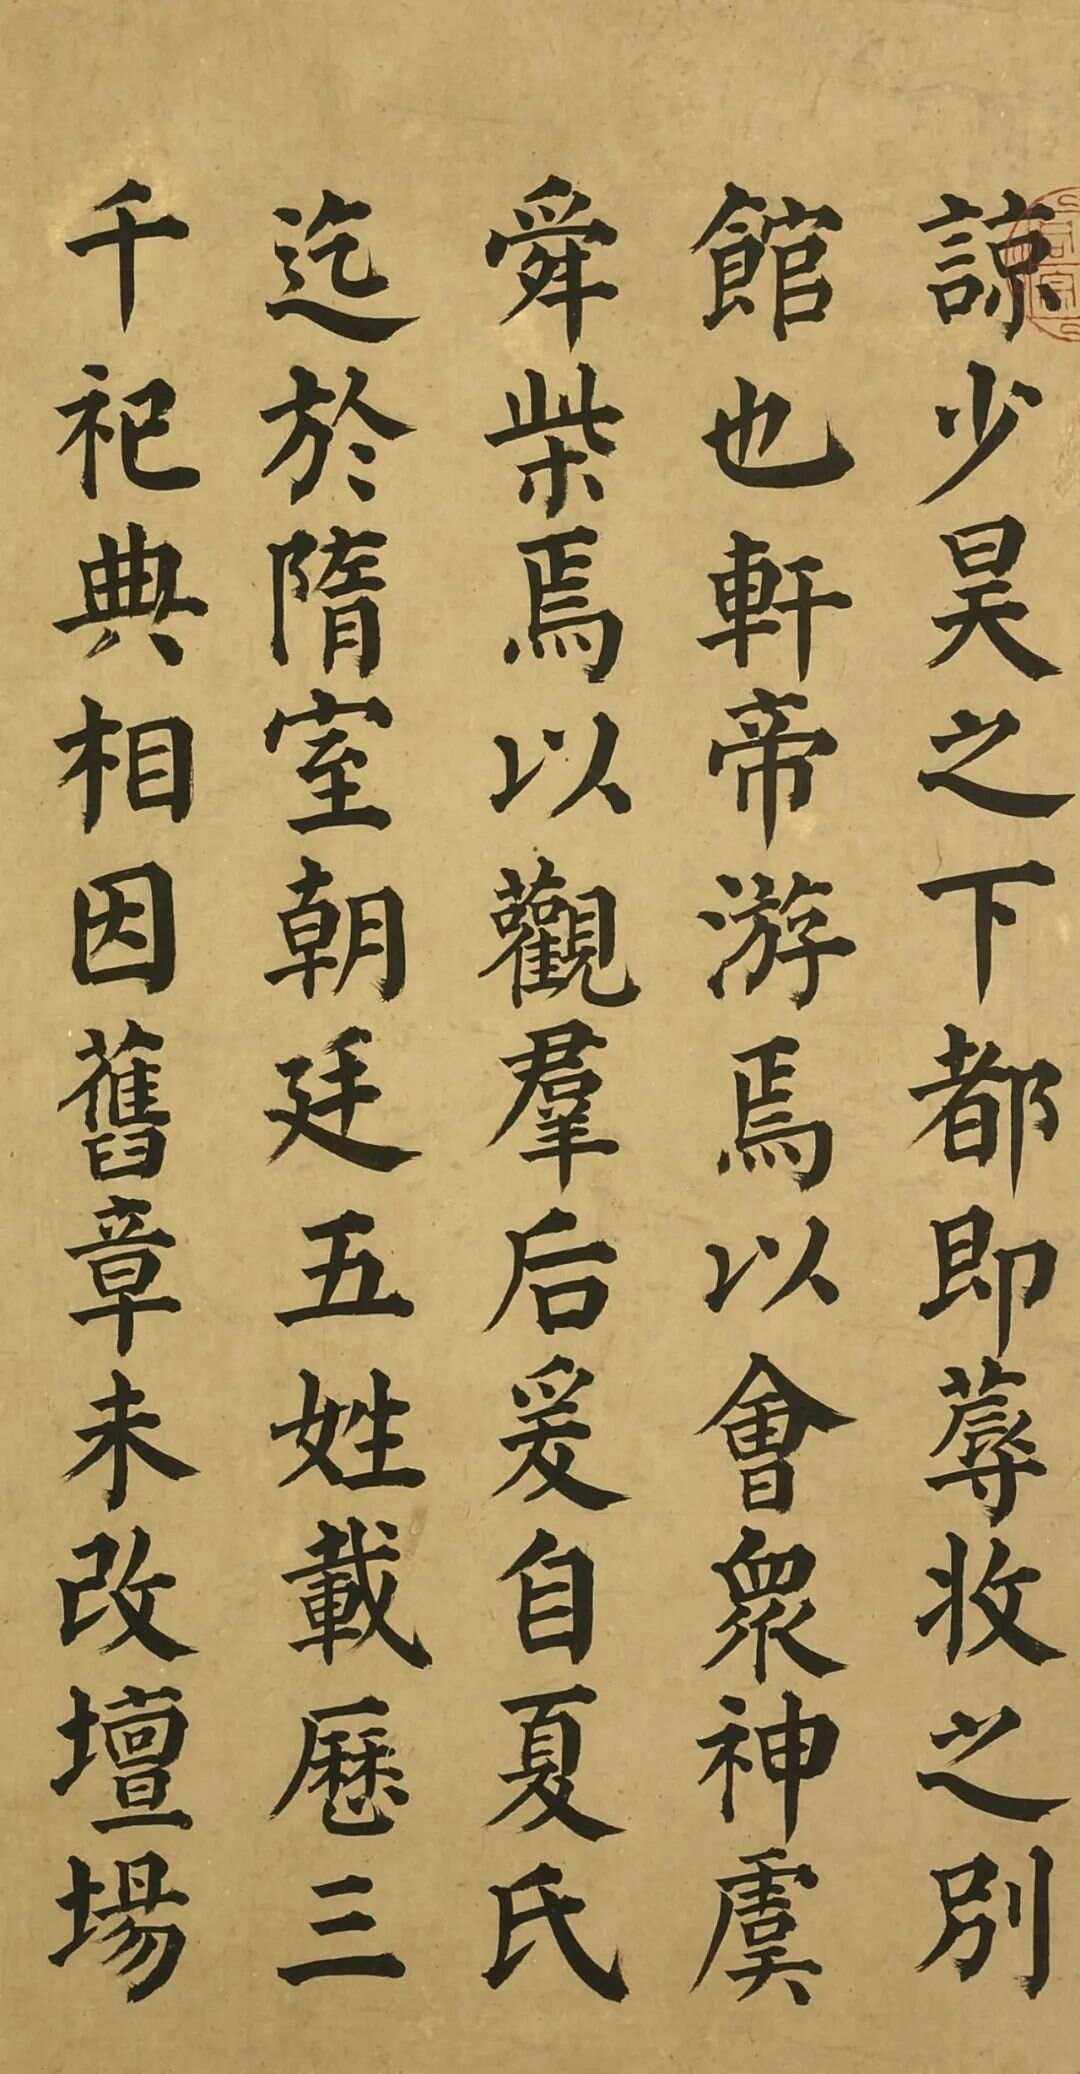 諒少昊之下都即蓐收之別
館也軒帝游焉以會衆神虞
舜柴焉以觀羣后爰自夏氏
迄於隋室朝廷五姓載歷三
千祀典相因舊章未改壇場